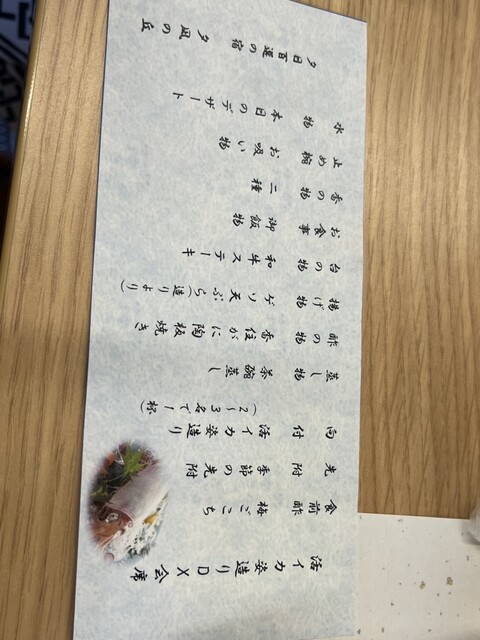 活イカ姿造りDX会席
食前酢 梅ごこち
先附 季節の先附
向付 活イカ姿造り
(2～3名で1杯)
蒸し物 茶碗蒸し
酢の物 香住がに陶板焼き
揚げ物 ゲソ天ぷら(造りより)
台の物 和牛ステーキ
お食事 御飯物
香の物 二種
止め椀 お吸い物
水物 本日のデザート
夕日百選の宿 夕凪の丘